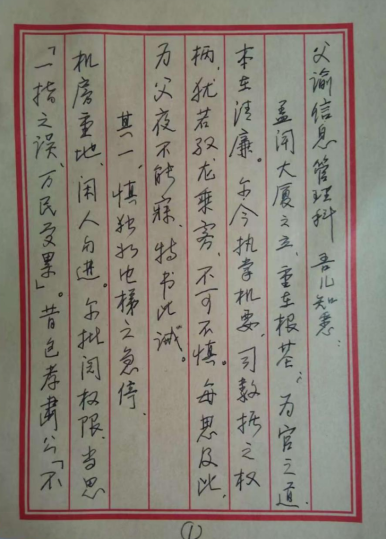 父谕信息管理科 吾儿知悉：
孟闻大厦之立，重在根基；为官之道，
本在清廉。尔今执掌机要，司数据之权
柄，犹若驭龙乘雾，不可不慎。每思及此，
为父夜不能寐，特书此诫。
其一，慎独如电梯之急停，
机房重地，闲人勿进。尔批阅权限，当思
「一指之误，万民受累」。昔包孝肃公「不
①